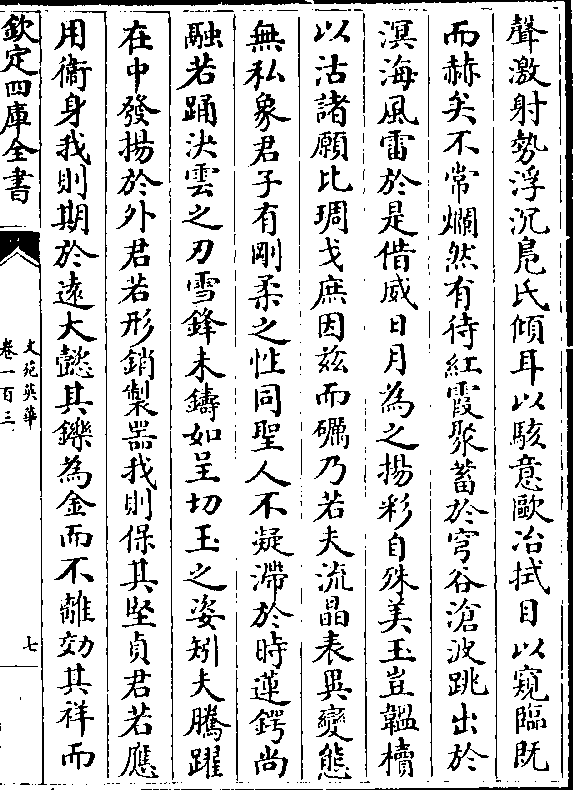 聲激射勢浮沉鳬氏傾耳以駭意歐冶拭目以窺臨既
而赫矣不常爛然有待紅霞聚蓄於穹谷滄波跳出於
溟海風雷於是借威日月為之揚彩自殊美玉豈韞櫝
以沽諸願比琱戈庶因兹而礪乃若夫流晶表異變態
無私象君子有剛柔之性同聖人不凝滯於時蓮鍔尚
融若踊決雲之刃雪鋒未鑄如呈切玉之姿矧夫騰躍
在中發揚於外君若形銷製器我則保其堅貞君若應
用衛身我則期於遠大懿其鑠為金而不離効其祥而
欽定四庫全書
文苑英華
卷一百三
七